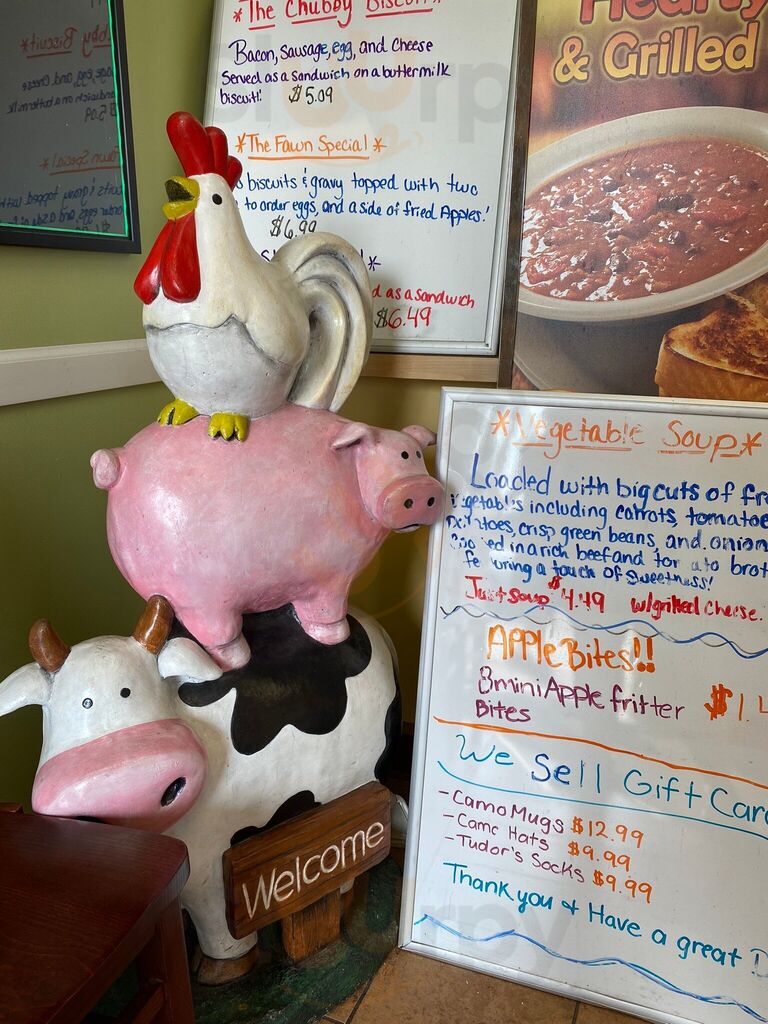 *The Chubby Biscuit*
Bacon, Sausage, egg, and Cheese
Served as a sandwich on a buttermilk
biscuit! $5.09
*The Fawn Special*
biscuits & gravy topped with two
to order eggs, and a side of fried Apples!
$6.99
*
as a sandwich
$6.49
Hearty
& Grilled
*Vegetable Soup*
Loaded with big cuts of
vegetables including carrots, tomatoe
Potatoes, crisp green beans, and onion
in a rich beef and
a touch of sweetness!
Just soup $4.49 w/grilled cheese.
Apple Bites!!
8 mini Apple fritter $1.4
Bites
We Sell Gift Car
-Camo Mugs $12.99
-Camo Hats $9.99
-Tudor's Socks $9.99
Thank you & Have a great D
Welcome